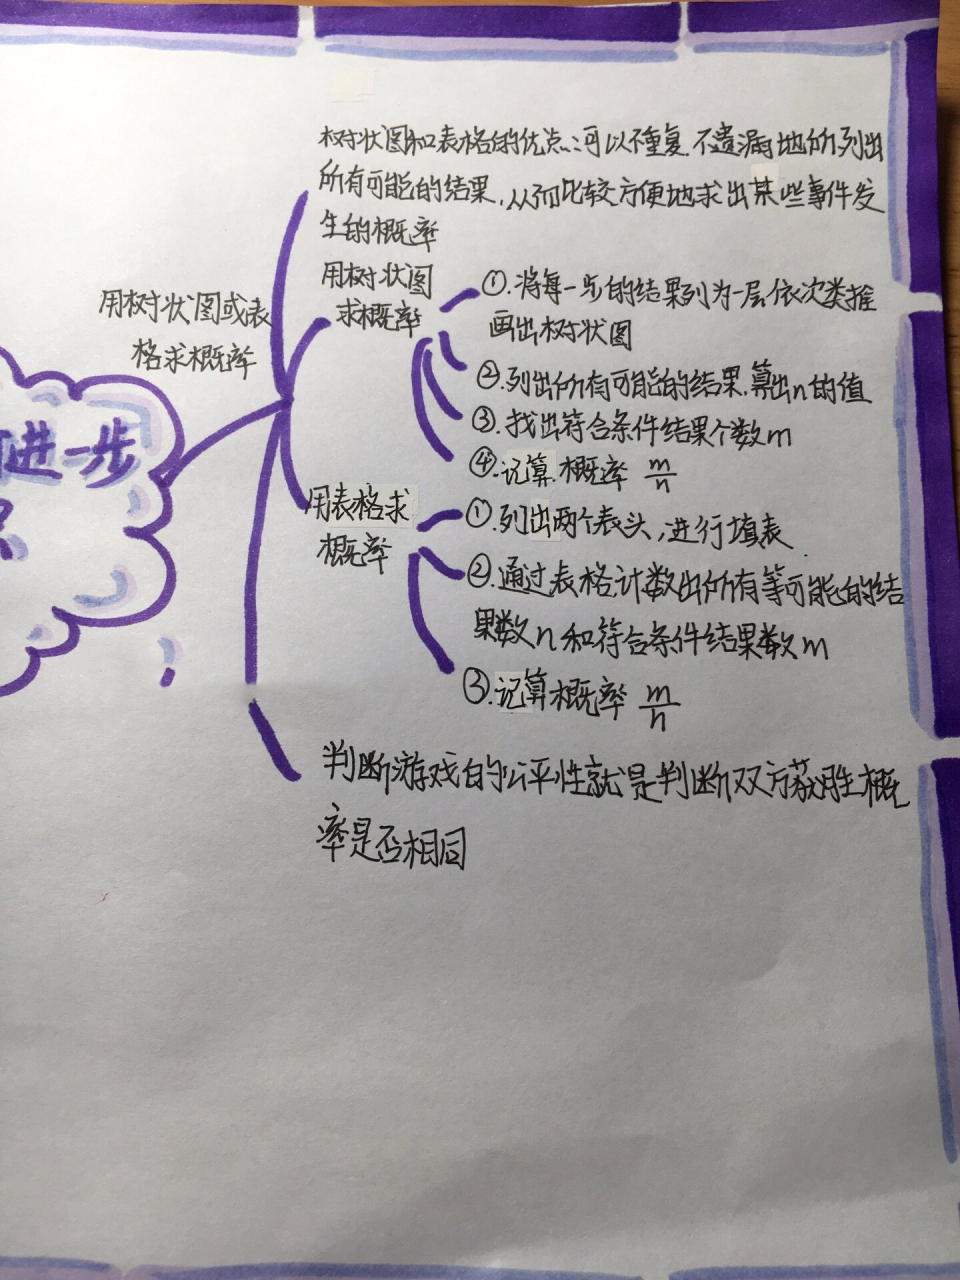 树状图和表格的优点:可以不重复.不遗漏地所列出
所有可能的结果,从而比较方便地求出某些事件发
生的概率
用树状图
求概率
①.将每一步的结果列为一层依次类推
画出树状图
②.列出所有可能的结果.算出n的值
③.找出符合条件结果个数m
④.记算.概率 m/n
用树状图或表
格求概率
进一步
用表格求
概率
①.列出两个表头,进行填表.
②.通过表格计数出所有等可能的结
果数n和符合条件结果数m
③.记算概率 m/n
判断游戏的公平性就是判断双方获胜概
率是否相同